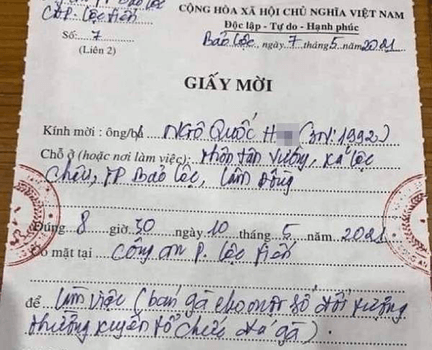 CỘNG HÒA XÃ HỘI CHỦ NGHĨA VIỆT NAM
CAP. Lộc Tiến
Độc lập - Tự do - Hạnh phúc
Số: 7
Bảo Lộc, ngày 7 tháng 5 năm 2021
(Liên 2)
GIẤY MỜI
Kính mời : ông/bà Ngô Quốc H (SN: 1992)
Chỗ ở (hoặc nơi làm việc): thôn Tân Vượng, xã Lộc
Châu, TP Bảo Lộc, Lâm Đồng
Đúng 8 giờ 30 ngày 10 tháng 5 năm 2021
Có mặt tại Công an P. Lộc Tiến
để làm việc (bán gà cho một số đối tượng
thường xuyên tổ chức đá gà).